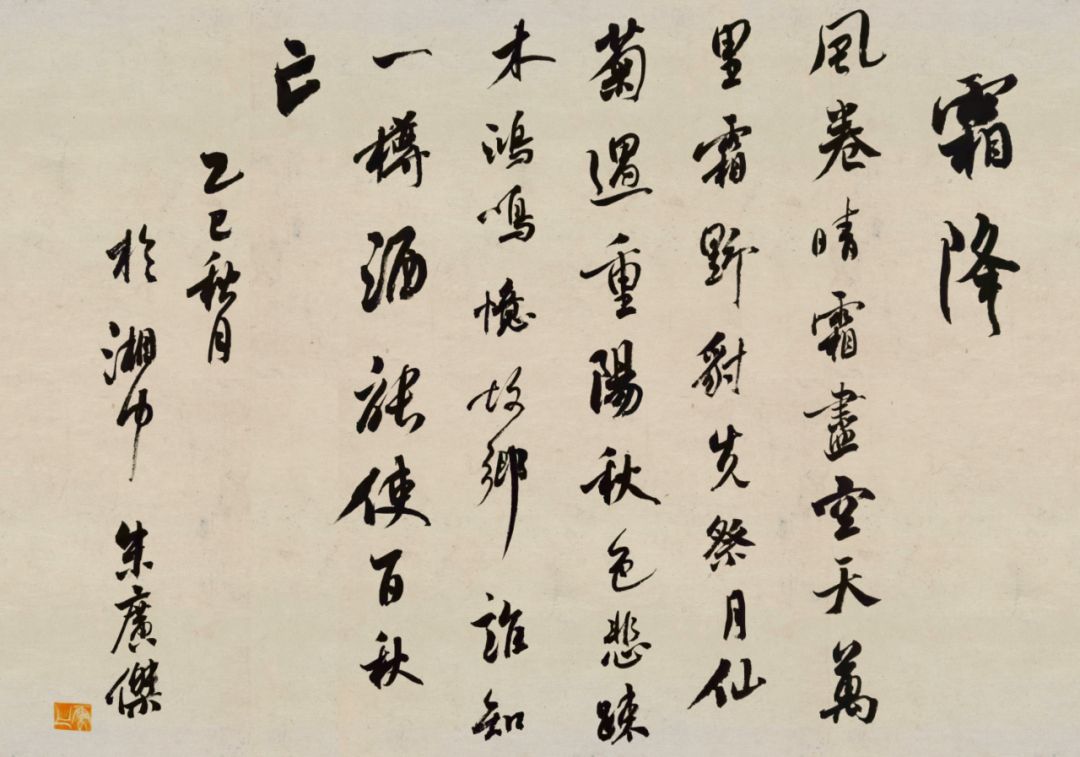 霜降
風卷晴霜盡空天萬
里霜野豺先祭月仙
菊遇重陽秋色悲疎
木鴻鳴憶故鄉誰知
一樽酒能使百秋
亡
乙巳秋月
於湘中朱廣傑